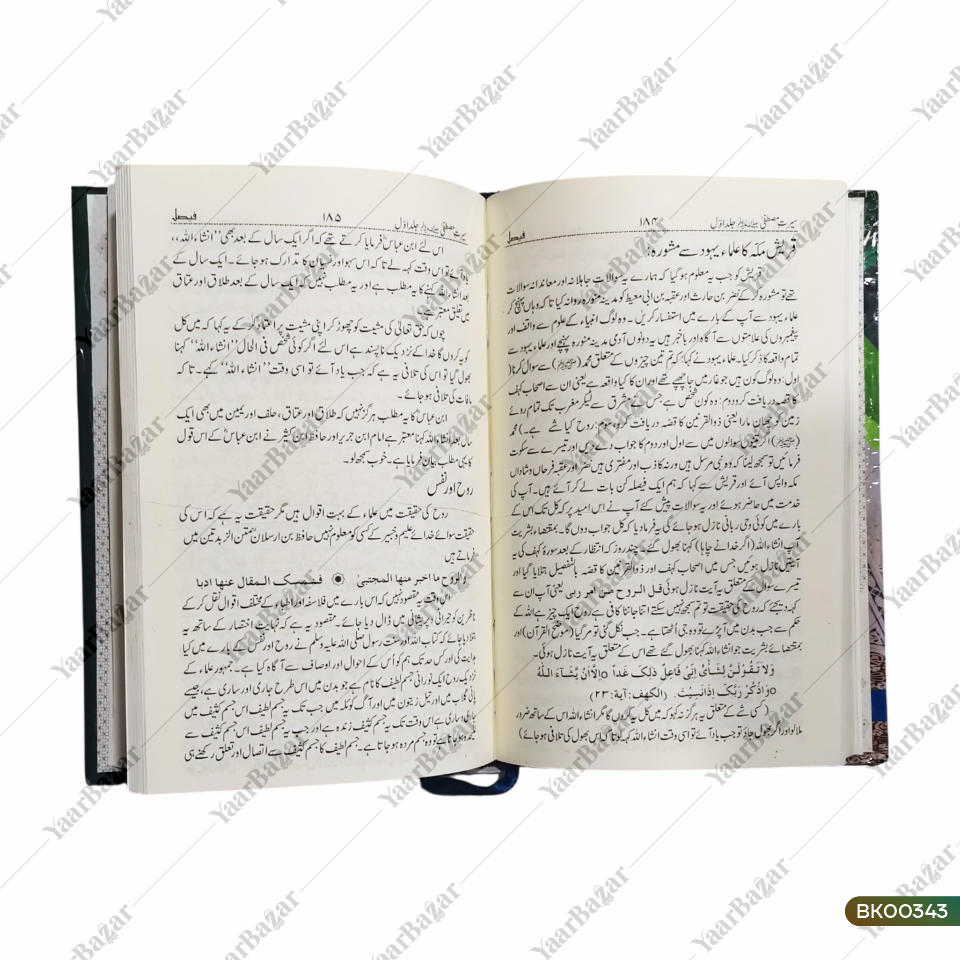 سیرت مصطفیٰ ﷺ جلد اوّل ۱۸۴ فیصل
قریش مکہ کا علماء یہود سے مشورہ:
قریش کو جب یہ معلوم ہو گیا کہ ہمارے یہ سوالات جاہلانہ اور معاندانہ سوالات
تھے تو مشورہ کر کے نضر بن حارث اور عقبہ بن ابی معیط کو مدینہ منورہ روانہ کیا تاکہ وہاں پہنچ کر
علماء یہود سے آپ کے بارے میں استفسار کریں۔ وہ لوگ انبیاء کے علوم سے واقف اور
پیغمبروں کی علامتوں سے آگاہ اور باخبر ہیں یہ دونوں آدمی مدینہ منورہ پہنچے اور علماء یہود سے
تمام واقعہ ذکر کیا۔ علماء یہود نے کہا کہ تم تین چیزوں کے متعلق محمد (ﷺ) سے سوال کرنا
اول: وہ لوگ کون ہیں جو غار میں جا چھپے تھے اور ان کا کیا واقعہ ہے یعنی ان سے اصحاب کہف
کا قصہ دریافت کرو دوم: وہ کون شخص ہے جس نے مشرق سے لیکر مغرب تک تمام روئے
زمین کو چھان مارا یعنی ذوالقرنین کا قصہ دریافت کرو، سوم: روح کیا شے ہے۔) محمد
(ﷺ) اگر تینوں سوالوں میں سے اول اور دوم کا جواب دے دیں اور تیسرے سے سکوت
فرمائیں تو سمجھ لینا کہ وہ نبی مرسل ہیں ورنہ کاذب اور مفتری ہیں نضر اور عقبہ فرحاں و شاداں
مکہ واپس آئے اور قریش سے کہا کہ ہم ایک فیصلہ کن بات لے کر آئے ہیں۔ آپ کی
خدمت میں حاضر ہوئے اور یہ سوالات پیش کئے آپ نے اس امید پر کہ کل تک اس کے
بارے میں کوئی وحی ربانی نازل ہو جائے گی یہ فرما دیا کہ کل جواب دوں گا۔ بمقتضائے بشریت
آپ انشاء اللہ (اگر خدا نے چاہا) کہنا بھول گئے۔ چند روز کہ انتظار کے بعد سورۂ کہف کی یہ
آیتیں نازل ہوئیں جس میں اصحاب کہف اور ذوالقرنین کا قصہ بالتفصیل بتلایا گیا اور
تیسرے سوال کے متعلق یہ آیت نازل ہوئی قل الروح من امر ربی یعنی آپ ان سے
کہہ دیجئے کہ روح کی حقیقت تو تم سمجھ نہیں سکتے اتنا جاننا کافی ہے روح ایک چیز ہے اللہ کے
حکم سے جب بدن میں آ پڑے تو وہ جی اُٹھتا ہے۔ جب نکل گئی تو مر گیا (موضح القرآن) اور
بمقتضائے بشریت جو انشاء اللہ کہنا بھول گئے تھے اس کے متعلق یہ آیت نازل ہوئی۔
وَلَا تَقُوْلَنَّ لِشَاْئٍ اِنِّىْ فَاعِلٌ ذٰلِكَ غَداً o اِلَّا اَنْ يَّشَآءَ اللّٰهُ
o وَاذْكُرْ رَبَّكَ اِذَا نَسِيْتَ۔ (الکھف: آیة: ۲۳)
(کسی شے کے متعلق یہ ہرگز نہ کہو کہ میں کل یہ کروں گا مگر انشاء اللہ اس کے ساتھ ضرور
ملا لو اور اگر بھول جاؤ تو جب یاد آئے تو اسی وقت انشاء اللہ کہہ لو تاکہ اس بھول کی تلافی ہو جائے)
سیرت مصطفیٰ ﷺ جلد اوّل ۱۸۵ فیصل
اس لئے ابن عباسؓ فرمایا کرتے تھے کہ اگر ایک سال کے بعد بھی ’’انشاء اللہ،،
یاد آئے تو اس وقت کہہ لے تاکہ اس سہو اور نسیان کا تدارک ہو جائے۔ ایک سال کے
بعد انشاء اللہ کہنے کا یہ مطلب ہے اور یہ مطلب نہیں کہ ایک سال کے بعد طلاق اور عتاق
میں تعلیق معتبر ہے۔
چوں کہ حق تعالیٰ کی مشیت کو چھوڑ کر اپنی مشیت پر اعتماد کر کے یہ کہنا کہ میں کل
کو یہ کروں گا خدا کے نزدیک ناپسند ہے اس لئے اگر کوئی شخص فی الحال ’’انشاء اللہ‘‘ کہنا
بھول گیا تو اس کی تلافی یہ ہے کہ جب یاد آئے تو اسی وقت ’’انشاء اللہ‘‘ کہے۔ تاکہ
مافات کی تلافی ہو جائے۔
ابن عباسؓ کا یہ مطلب ہرگز نہیں کہ طلاق اور عتاق، حلف اور یمین میں بھی ایک
سال بعد انشاء اللہ کہنا معتبر ہے امام ابن جریر اور حافظ ابن کثیر نے ابن عباسؓ کے اس قول
کا یہی مطلب بیان فرمایا ہے۔ خوب سمجھ لو۔
روح اور نفس
روح کی حقیقت میں علماء کے بہت اقوال ہیں مگر حقیقت یہ ہے کہ اس کی
حقیقت سوائے خدائے علیم و خبیر کے کسی کو معلوم نہیں حافظ بن ارسلان متن الزبد تین میں
فرماتے ہیں
والروح ما اخبر عنها المجتبیٰ فنمسک المقال عنها ادبا
اس وقت یہ مقصود نہیں کہ اس بارے میں فلاسفہ اور اطباء کے مختلف اقوال نقل کر کے
ناظرین کو حیرانی و پریشانی میں ڈال دیا جائے۔ مقصود یہ ہے کہ نہایت اختصار کے ساتھ یہ
بتلا دیا جائے کہ کتاب اللہ اور سنت رسول صلی اللہ علیہ وسلم نے روح اور نفس کے بارے میں کیا
ہدایت کی اور کس حد تک ہم کو اُس کے احوال اور اوصاف سے آگاہ کیا ہے۔ جمہور علماء کے
نزدیک روح ایک نورانی جسم لطیف کا نام ہے جو بدن میں اس طرح جاری اور ساری ہے، جیسے
پانی گلاب میں اور تیل زیتون میں اور آگ کوئلہ میں جب تک یہ جسم لطیف اس جسم کثیف میں
جاری و ساری ہے اس وقت تک یہ جسم کثیف زندہ ہے اور جب یہ جسم لطیف اس جسم کثیف سے
علیحدہ ہو جاتا ہے تو وہ جسم مردہ ہو جاتا ہے۔ جسم لطیف کا جسم کثیف سے اتصال اور تعلق رکھنے ہی
YaarBazar
BK00343